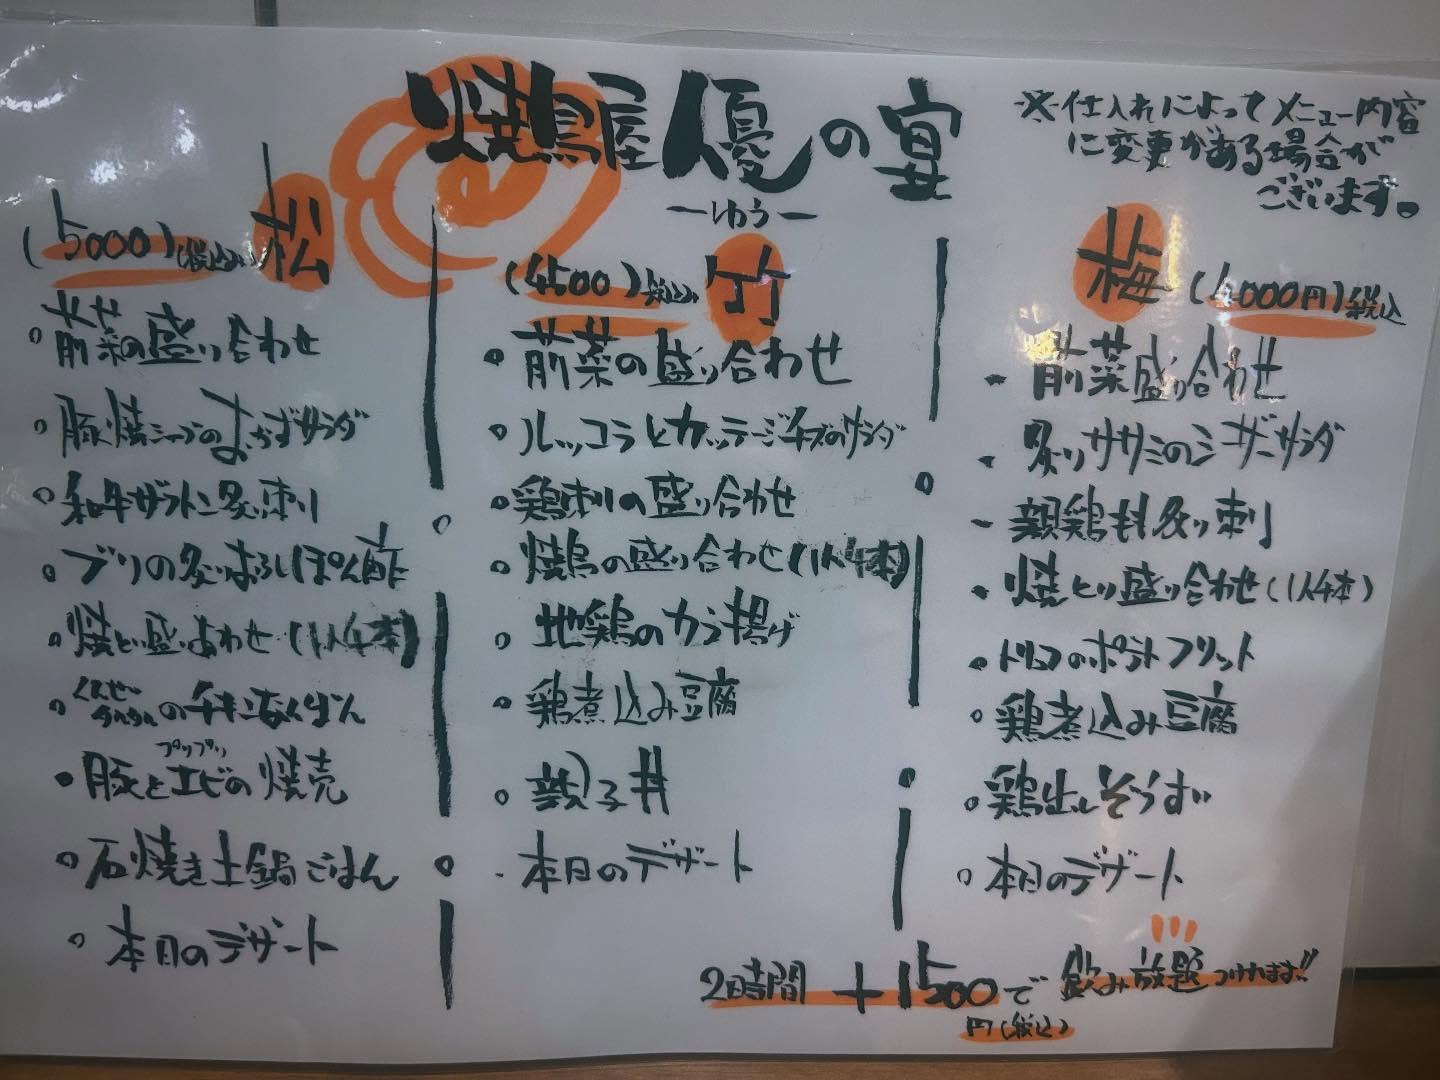 焼鳥屋 優の宴
ーゆうー
※仕入れによってメニュー内容
に変更がある場合が
ございます。
(5000)(税込) 松
・前菜の盛り合わせ
・豚焼シャブのおかずサラダ
・和牛ザブトン炙り刺し
・ブリの炙りおろしぽん酢
・焼とり盛りあわせ(1人4本)
・くんせいタルタルのチキン南ばん
・豚とプリプリエビの焼売
・石焼き土鍋ごはん
・本日のデザート
(4500)税込 竹
・前菜の盛り合わせ
・ルッコラとカッテージチーズのサラダ
・鶏刺しの盛り合わせ
・焼鳥の盛り合わせ(1人4本)
・地鶏のカラ揚げ
・鶏煮込み豆腐
・親子丼
・本日のデザート
梅 (4000円)税込
・前菜盛り合わせ
・炙りササミのシーザーサラダ
・親鶏もも炙り刺し
・焼とり盛り合わせ(1人4本)
・トリュフのポテトフリット
・鶏煮込み豆腐
・鶏出しぞうすい
・本日のデザート
2時間 +1500で 飲み放題つけれます!!
円(税込)